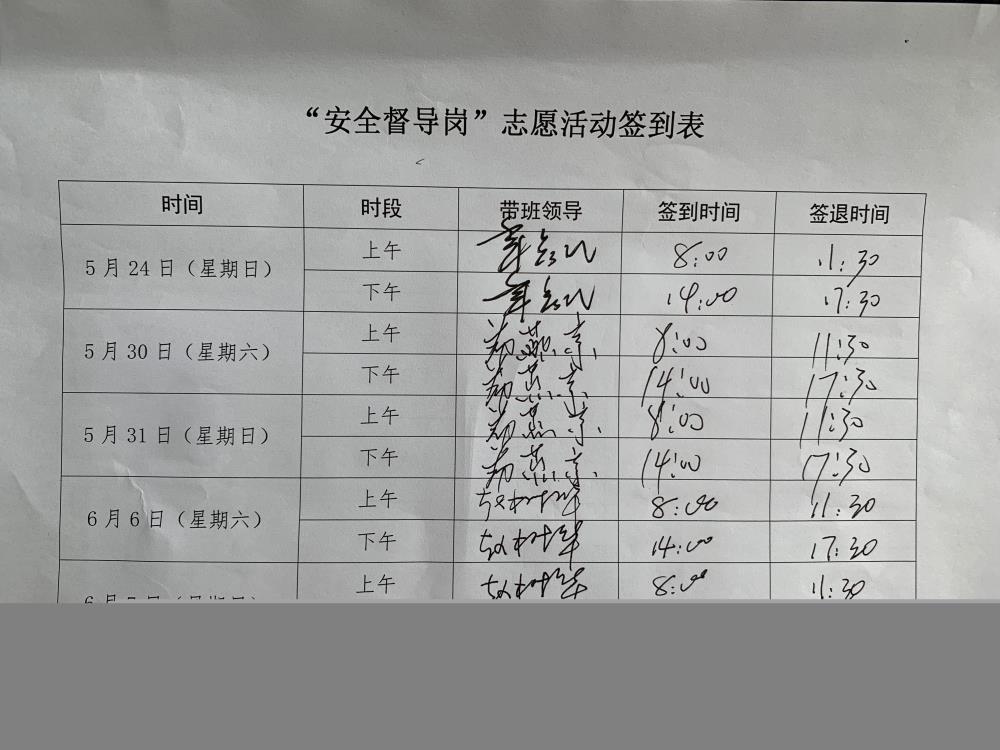 “安全督导岗”志愿活动签到表
时间 时段 带班领导 签到时间 签退时间
5月24日（星期日） 上午 8:00 11:30
下午 14:00 17:30
5月30日（星期六） 上午 8:00 11:30
下午 14:00 17:30
5月31日（星期日） 上午 8:00 11:30
下午 14:00 17:30
6月6日（星期六） 上午 8:00 11:30
下午 14:00 17:30
上午 8:00 11:30